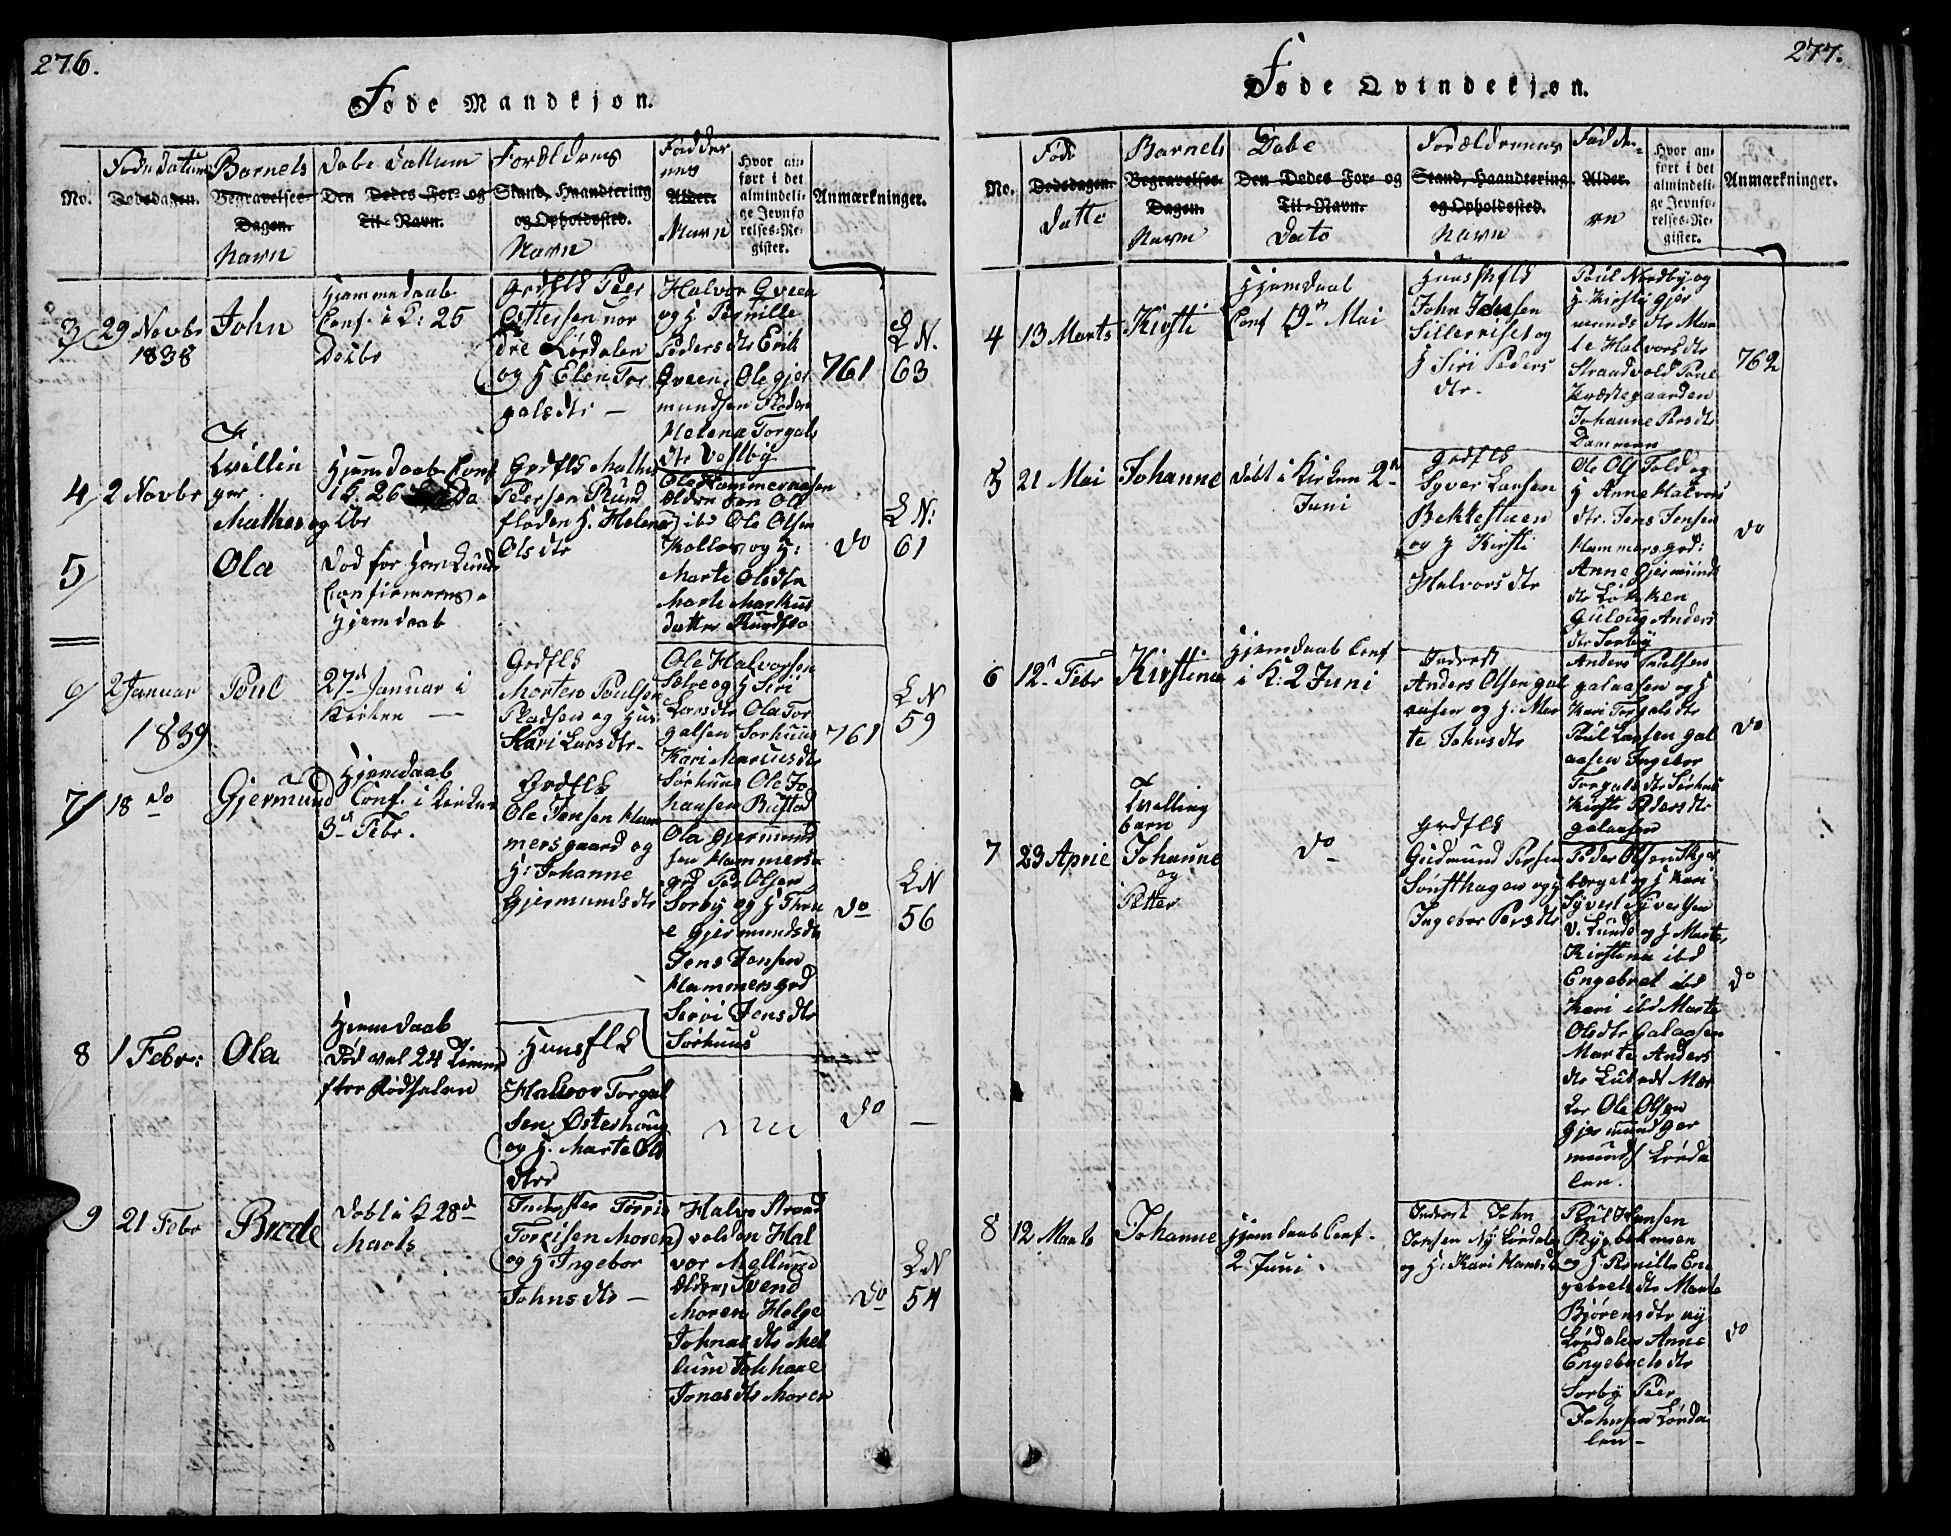 276.
Føde Mandkjøn.
No.
Fødedatum
Dødsdagen.
Barnets
Begravelses-
Dagen.
Navn
Døbe Dattum
Den Dødes For- og
Til-Navn.
Forældrenes
Stand, Haandtering
og Opholdssted.
Navn
Fadder
nes
Alder.
Navn
Hvor an-
ført i det
almindeli-
ge Jevnfø-
relses-Re-
gister.
Anmærkninger.
3
29 Novbr
1838
John
Hjemmedaab
Conf. i K: 26
Decbr
Grdflk Peer
Pettersen nor
dre Lørdalen
og H Elen Tor
galsdtr —
Halvor Qveen
og H Pernille
Pedersdtr Erik
Qveen, Ole Gjer
mundsen Floden
Helena Torgals
dtr Vestby
761
L N.
63
4
2 Novbr
Tvillin
ger
Mathes og
Hjemdaab Conf
i K. 26 De
cbr
Grdflk Mathis
Peersen Rund
floden H. Helena
Olsdtr
Ole Kammeraasen
Ole Olsen
Kolles og H:
Marte Olsdtr
Marte Markus
datter Rundflo
do
L N:
61
5
Ola
Død før hun kunde
Confirmeres.
Hjemdaab
6
2 Januar
1839
Poul
27de Januar i
Kirken —
Grdflk
Morten Poulsen
Pladsen og Hus
Kari Larsdtr.
Ole Halvorsen
og H Siri
Larsdtr Ola Tor
galsen Sørhuus
Kari Mariusdtr
Sørhuus Ole Jo
hansen Bustad
761
L N
59
7
18 do
Gjermund
Hjemdaab
Conf. i Kirken
3de Febr.
Grdflk
Ole Jensen Ham
mersgaard og
H: Johanne
Gjermundsdtr
Ola Gjermund
sen Hammers
grd Per Olsen
Sørby og H Thru
e Gjermundsdtr
Jens Jensen
Hammersgrd
Sirri Jensdtr
Sørhuus
do
L N
56
8
1 Febr:
Ola
Hjemdaab
Død vel 24 Timer
efter Fødselen
Huusflk
Halvor Torgal
sen Østerhoug
og H. Marte Ols
dtr
do
—
9
21 Febr
Brede
Døbt i K 28de
Marts
Inderster Torris
Torrisen Moren
og H Ingebor
Johnsdtr —
Halvo Strand
volden Hal
vor Mellum
Elder, Svend
Moren Helge
Johnasdtr Mel
lum Johane
Jonasdtr Moren
do
L N
54
277.
Føde Qvindekjøn.
No.
Føde
Dødsdagen.
Datto
Barnets
Begravelses-
Dagen.
Navn
Døbe
Den Dødes For- og
Til-Navn.
Dato
Forældrenes
Stand, Haandtering
og Opholdssted.
Navn
Fadder-
Alder.
ne
Hvor an-
ført i det
almindeli-
ge Jevnfø-
relses-Re-
gister.
Anmærkninger.
4
13 Marts
Kirsti
Hjemdaab
Conf 19de Mai
Huusflk
John Jensen
Sillerviset og
H Siri Peders
dtr.
Poul Nordby og
H Kirsti Gjer
mundsdtr Mar
te Halvorsdtr
Straadvold Poul
Præstegaarden
Johanne Persdtr
Dammen
762
5
21 Mai
Johanne
Døbt i Kirken 2de
Juni
Grdflk
Syver Larsen
Bekkestuen
og H Kirsti
Halvorsdtr
Ole Ols Told og
H Anne Halvors
dtr. Jens Jensen
Hammersgrd:
Anne Gjermunds
dtr Løkken
Guloug Anders
dtr Sørby
do
6
12te Febr
Kirstina
Hjemdaab Conf
i K: 2 Juni
Inderst
Anders Olsen Gal
aasen og H: Mar
te Johnsdtr
Anders Poulsen
Galaasen og H
Kari Torgalsdtr
Poul Larsen Gal
aasen Ingebor
Torgalsdtr Sørhus
Kirsti Pedersdtr
Galaasen
do
7
23 April
Tvilling
børn
Johanne
og
Petter
do
Grdflk
Gudmund Persen
Sønsthagen og H
Ingebor Persdtr
Peder Olsen Skjæ
bærget og H Kari
Syver Syversen
v. Lund og H Marte
Kirstina ibd
Engebret ibd
Kari ibd Marte
Olsdtr Galaasen
Marte Anders
dtr Lutnes
Per Ole Olsen
Gjermund Ger
munds Lørda
len.
do
8
12 Marts
Johanne
Hjemdaab Conf.
2 Juni.
Inderst John
Jensen Ny Lørdalen
og H: Kari Hansdtr
Poul Hansen
Rysbakmoen
og H Pernille En
gebretsdtr Marte
Bjørensdtr ny
Lørdalen Anne
Engebretsdtr
Sørby Peer
Johnsen Lørda
len —
do